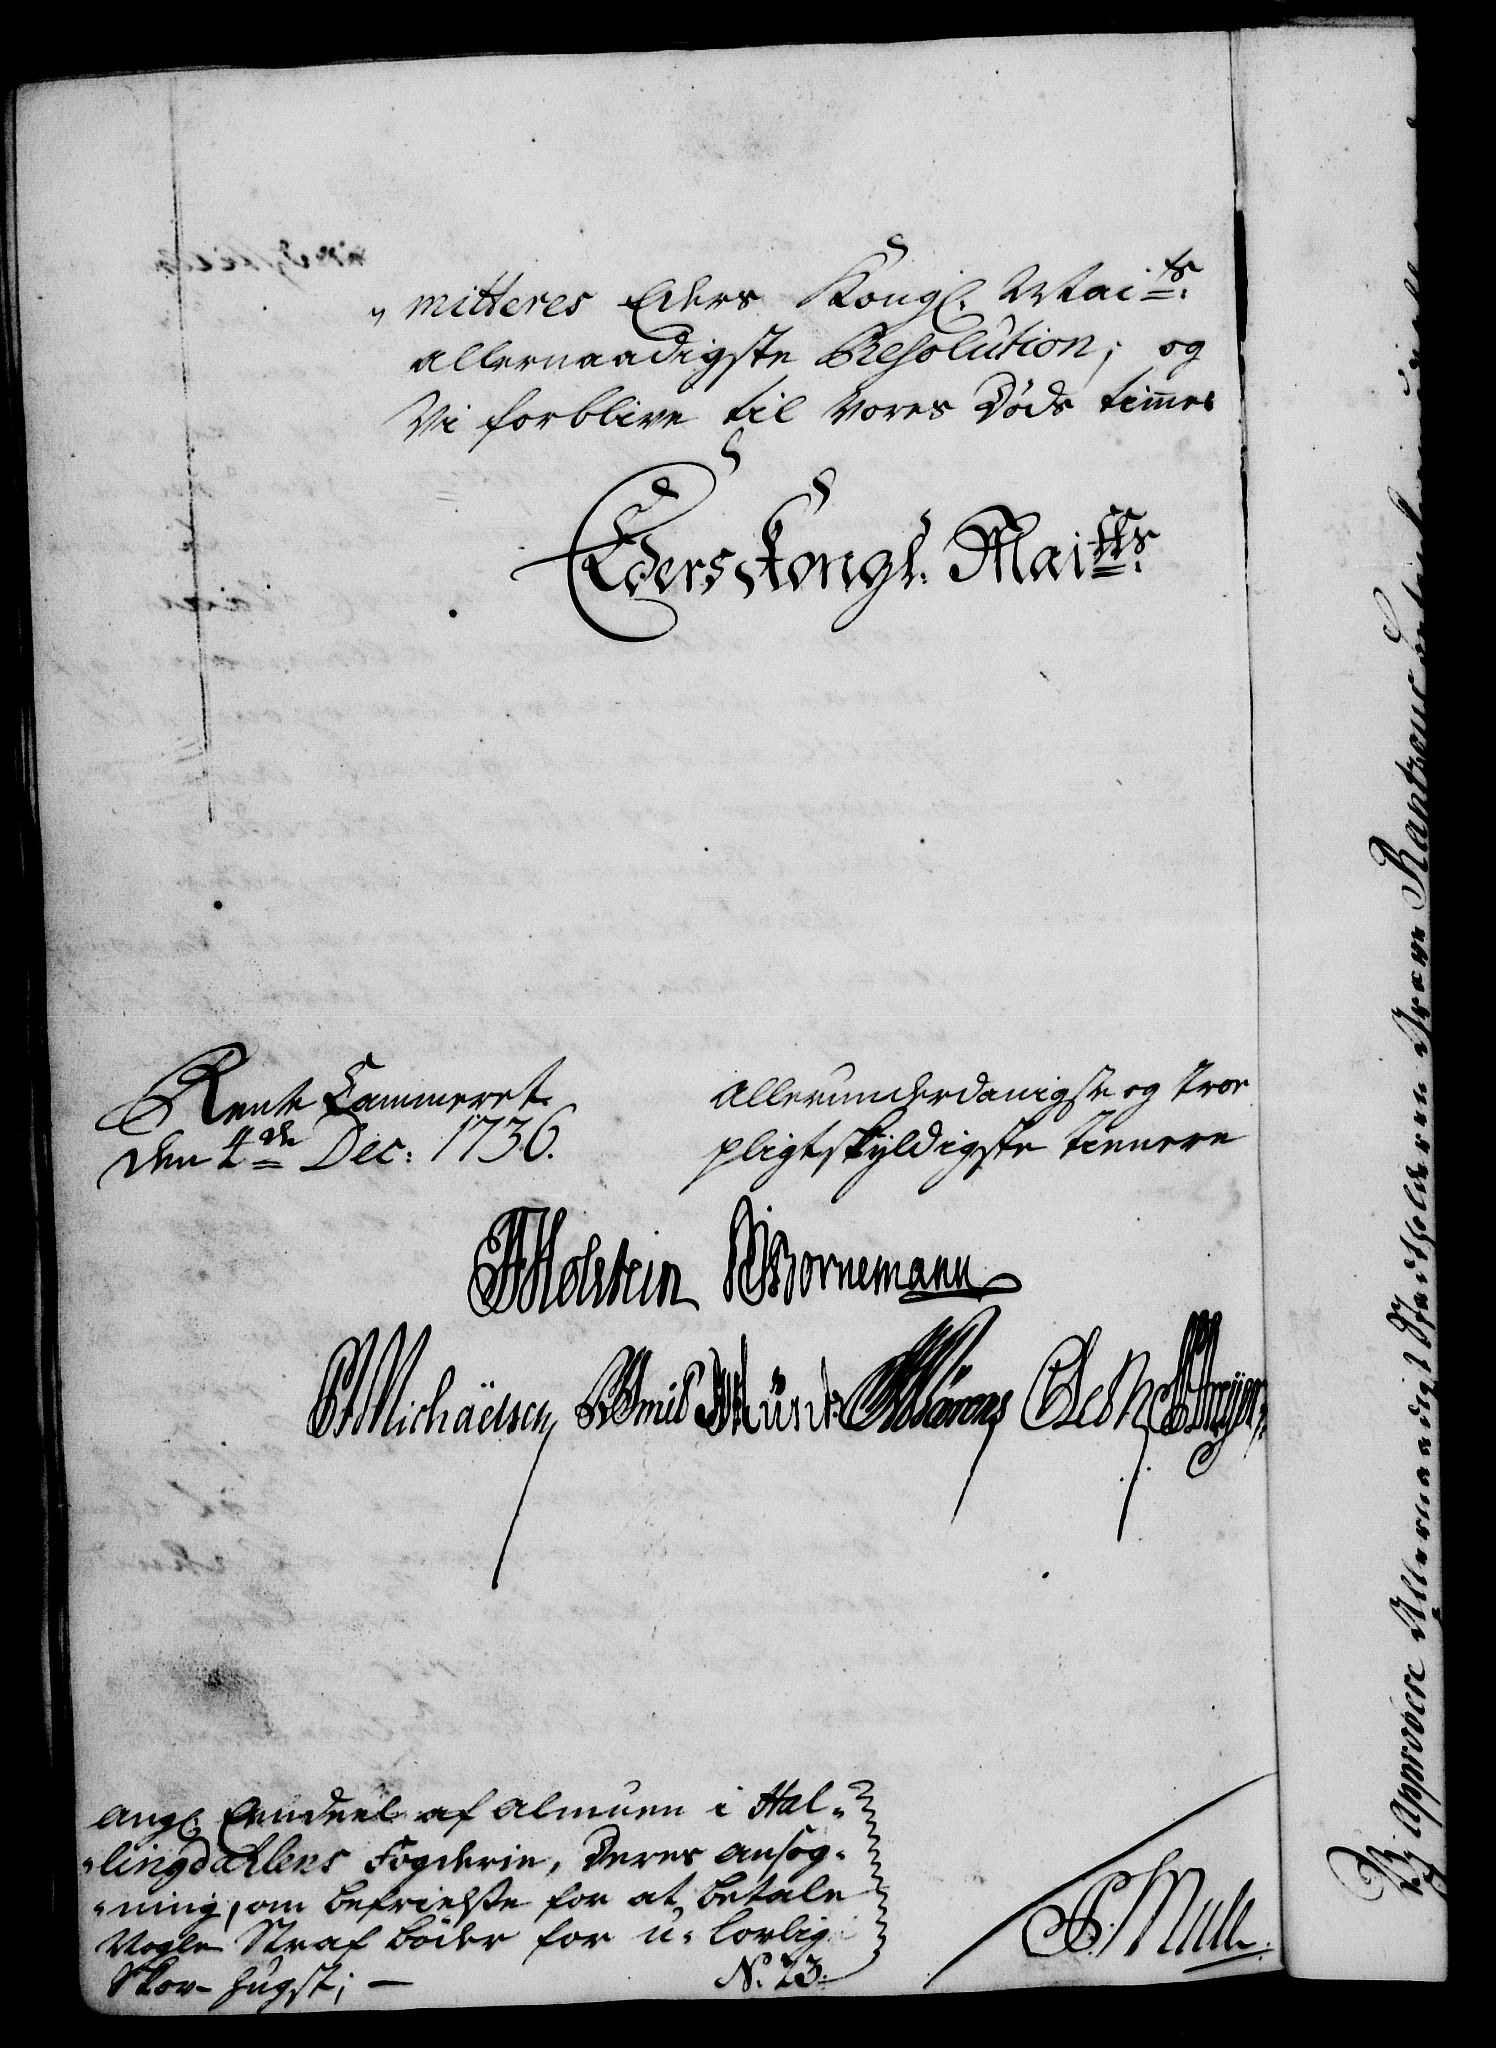 "mitteres Eders Kongl. Mai^ts:
allernaadigste Resolution; og
Vi forblive til Vores Døds timer
Eders Kongl: Mai^tts:
Rente Cammeret.
den 4^de Dec: 1736.
allerunderdanigste og troe
pligtskyldigste tienere
Holstein Bornemann
Michaëlsen
ang: Eendeel af almuen i Hal-
"lingdahlens Fogderie, Deres ansøg-
"ning, om befrielse for at betale
Nogle Straf bøder for u-lovlig
Skov-hugst; —
N. 23.
Mule.
Vj Approbere Allernaadigst Stadtholderen Greve Rantzous